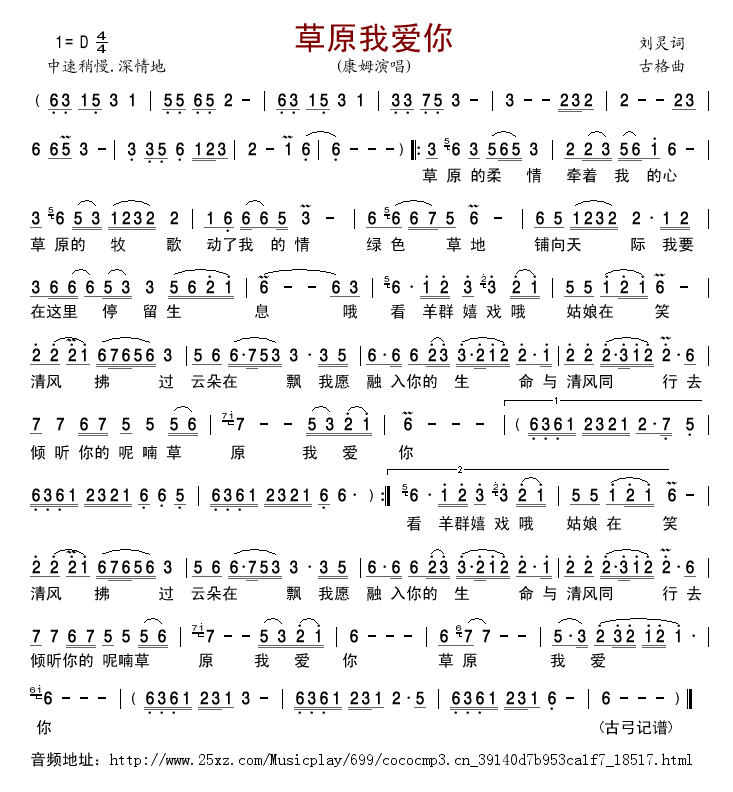 草原我爱你
1= D 4/4
刘灵词
中速稍慢.深情地
(康姆演唱)
古格曲
( 63 15 3 1 | 55 65 2 - | 63 15 3 1 | 33 75 3 - | 3 - - 232 | 2 - - 23 |
6 65 3 - | 3 35 6 123 | 2 - 1 6 | 6 - - - ) ‖: 3 56 3 565 3 | 2 23 56 1 6 - |
草 原 的柔 情 牵着 我 的心
3 56 53 1232 2 | 16 6 65 3 - | 6 56 67 5 6 - | 65 1232 2 · 12 |
草 原的 牧 歌 动了我 的 情 绿 色 草 地 铺向天 际 我要
366 653 3 5621 | 6 - - 63 | 56 · 12 3 23 21 | 55 121 6 - |
在这里 停 留 生 息 哦 看 羊群 嬉 戏 哦 姑娘在 笑
2 2 21 67656 3 | 56 6·753 3 · 35 | 6·6 6 23 3·212 2·1 | 2 2 2·312 2·6 |
清风 拂 过 云朵在 飘 我愿 融 入你的 生 命 与 清风同 行 去
7 7 67 5 5 56 | 7i7 - - 53 21 | 6 - - - | ( 6361 2321 2·7 5 |
1
倾 听 你的 呢 喃 草 原 我 爱 你
6361 2321 6 6 5 | 6361 2321 6 6 · ) :‖ 56 · 12 3 23 21 | 55 121 6 - |
2
看 羊群嬉 戏 哦 姑娘 在 笑
2 2 21 67656 3 | 56 6·753 3 · 35 | 6·6 6 23 3·212 2·1 | 2 2 2·312 2·6 |
清风 拂 过 云朵在 飘 我愿 融 入你的 生 命 与 清风同 行 去
7 7 67 55 56 | 7i7 - - 53 21 | 6 - - | 6 67 7 - - | 5·3 232 121 · |
倾听你的 呢喃草 原 我 爱 你 草 原 我 爱
6i6 - - - | ( 6361 231 3 - | 6361 231 2·5 | 6361 231 6 - | 6 - - - ) ‖
你
(古弓记谱)
音频地址：http://www.25xz.com/Musicplay/699/cococmp3.cn_39140d7b953ca1f7_18517.html